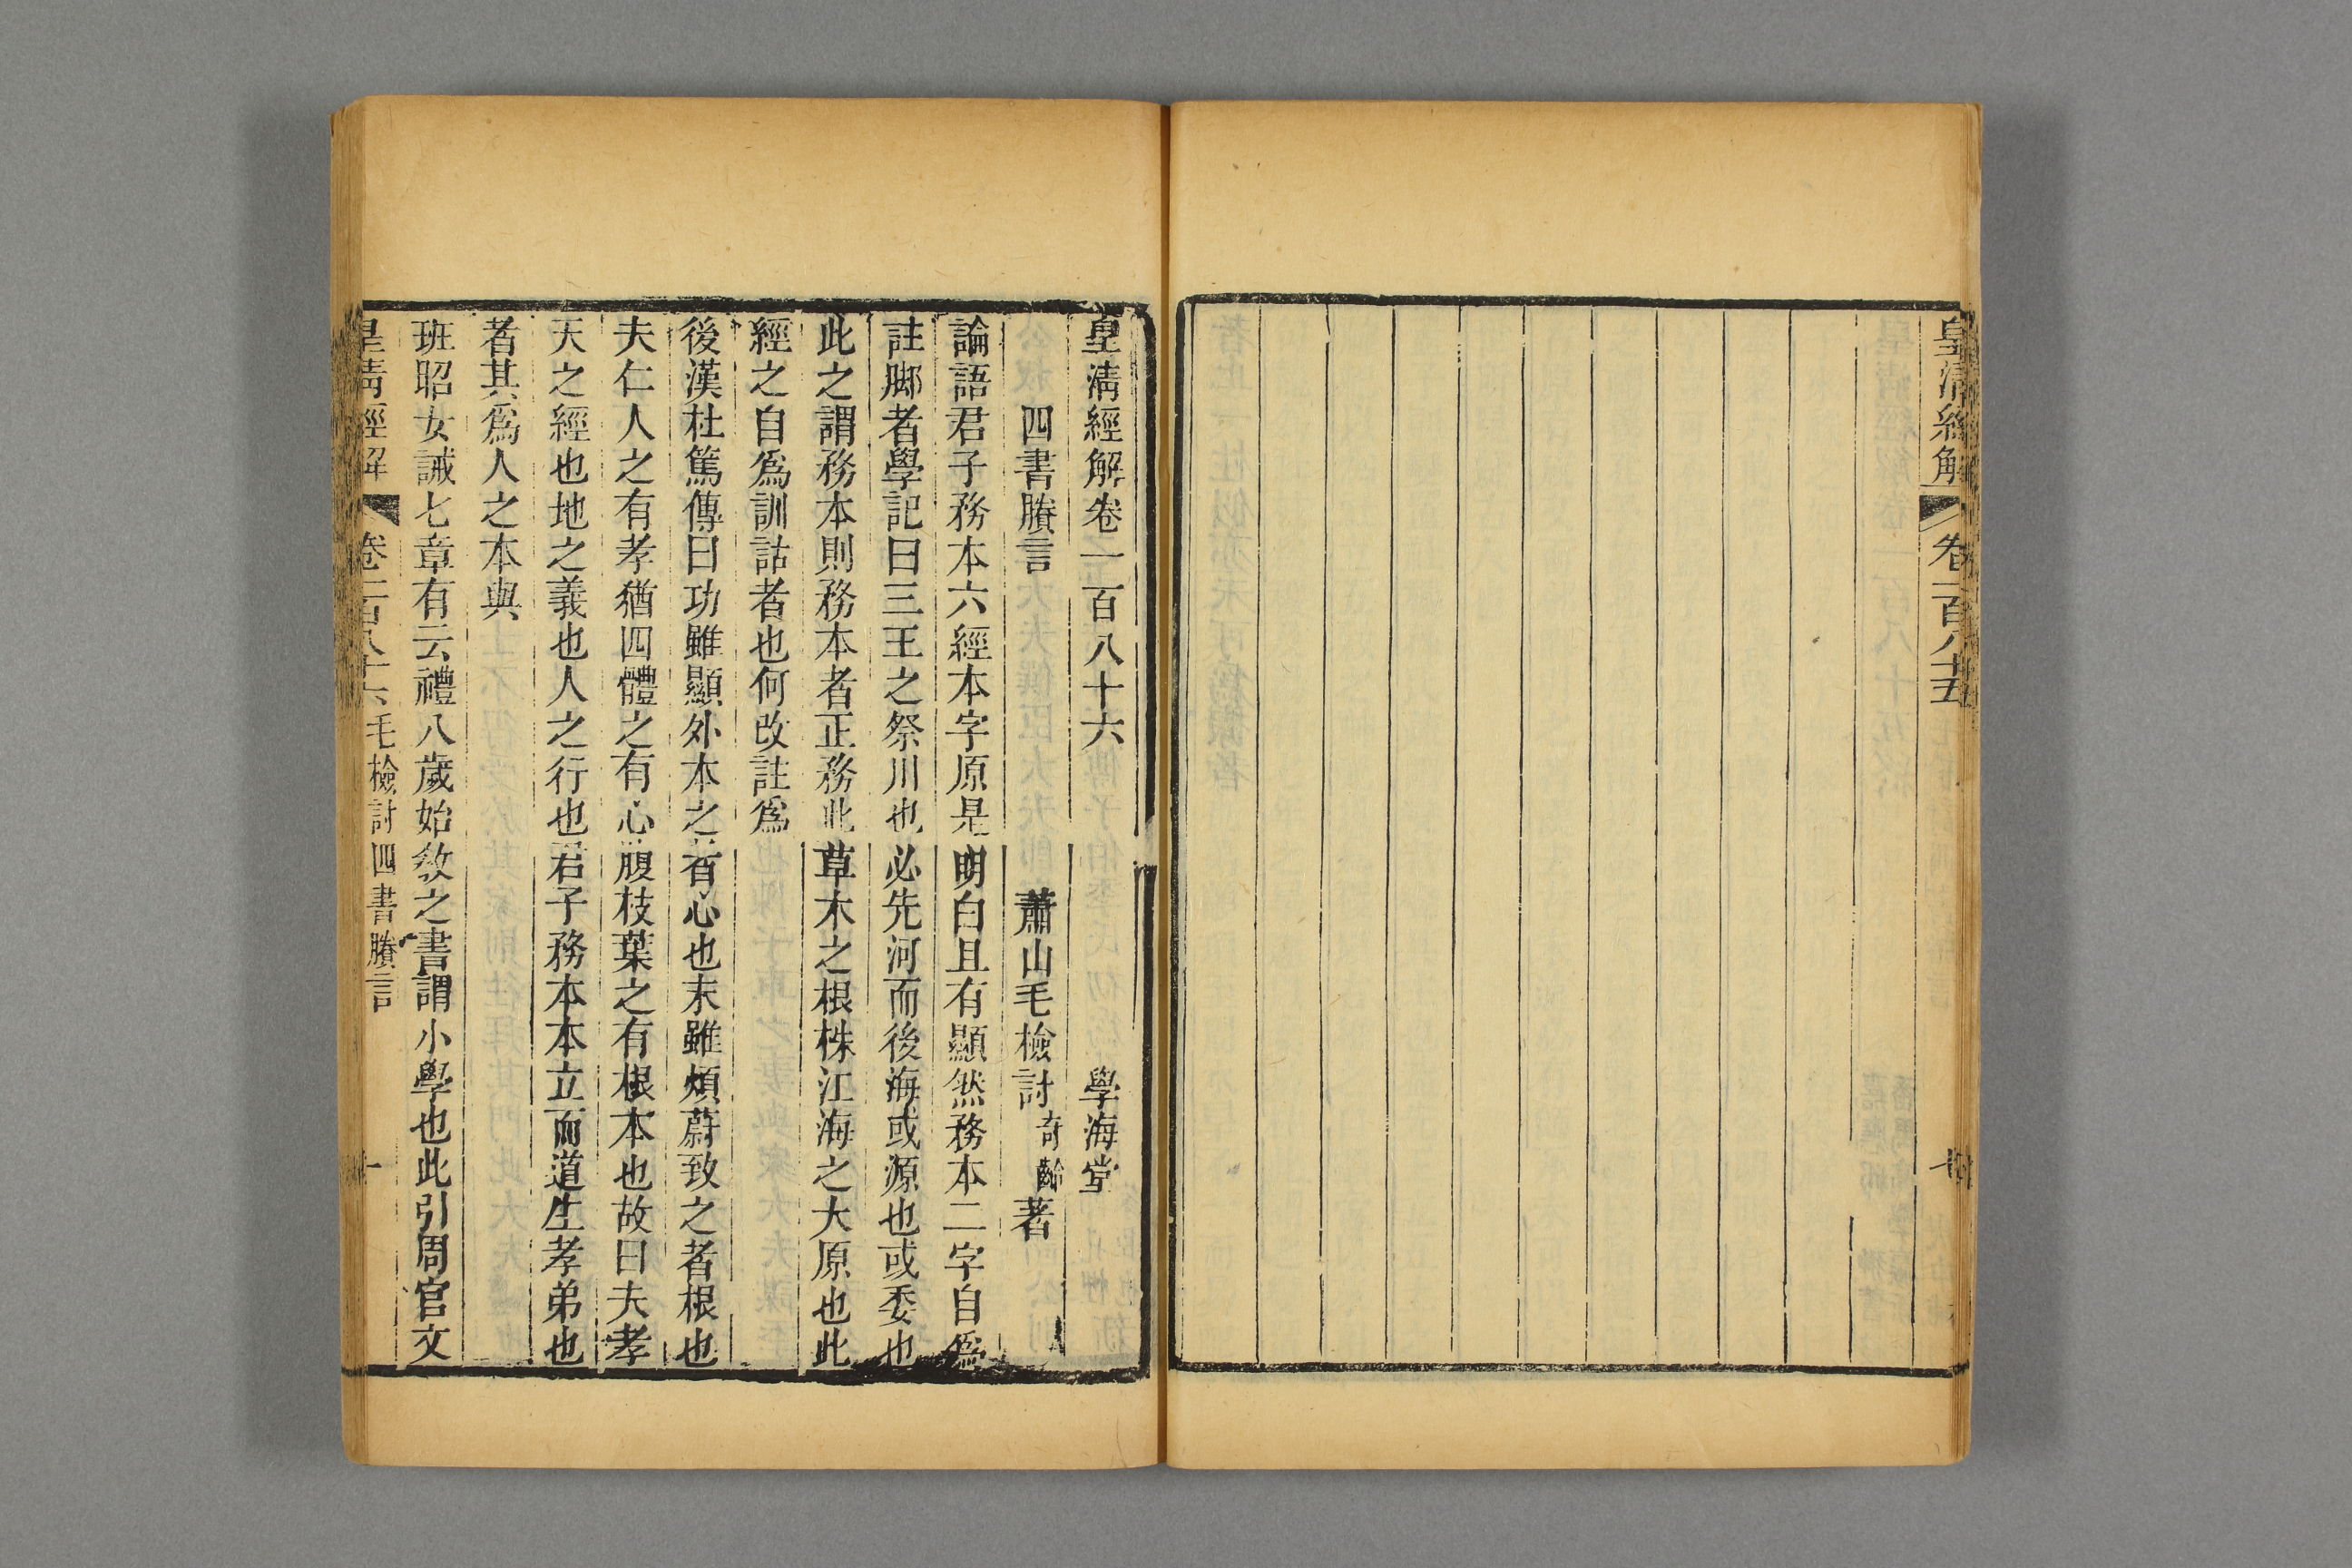 皇清經解 卷一百八十五
皇清經解卷一百八十六 學海堂
四書賸言 蕭山毛檢討奇齡著
論語君子務本六經本字原是明白且有顯然務本二字自爲
註腳者學記曰三王之祭川也必先河而後海或源也或委也
此之謂務本則務本者正務此草木之根株江海之大原也此
經之自爲訓詁者也何改註爲
後漢杜篤傳曰功雖顯外本之者心也末雖煩蔚致之者根也
夫仁人之有孝猶四體之有心腹枝葉之有根本也故曰夫孝
天之經也地之義也人之行也君子務本本立而道生孝弟也
者其爲人之本與
班昭女誡七章有云禮八歲始敎之書謂小學也此引周官文
皇清經解 卷一百八十六 毛檢討四書賸言 一